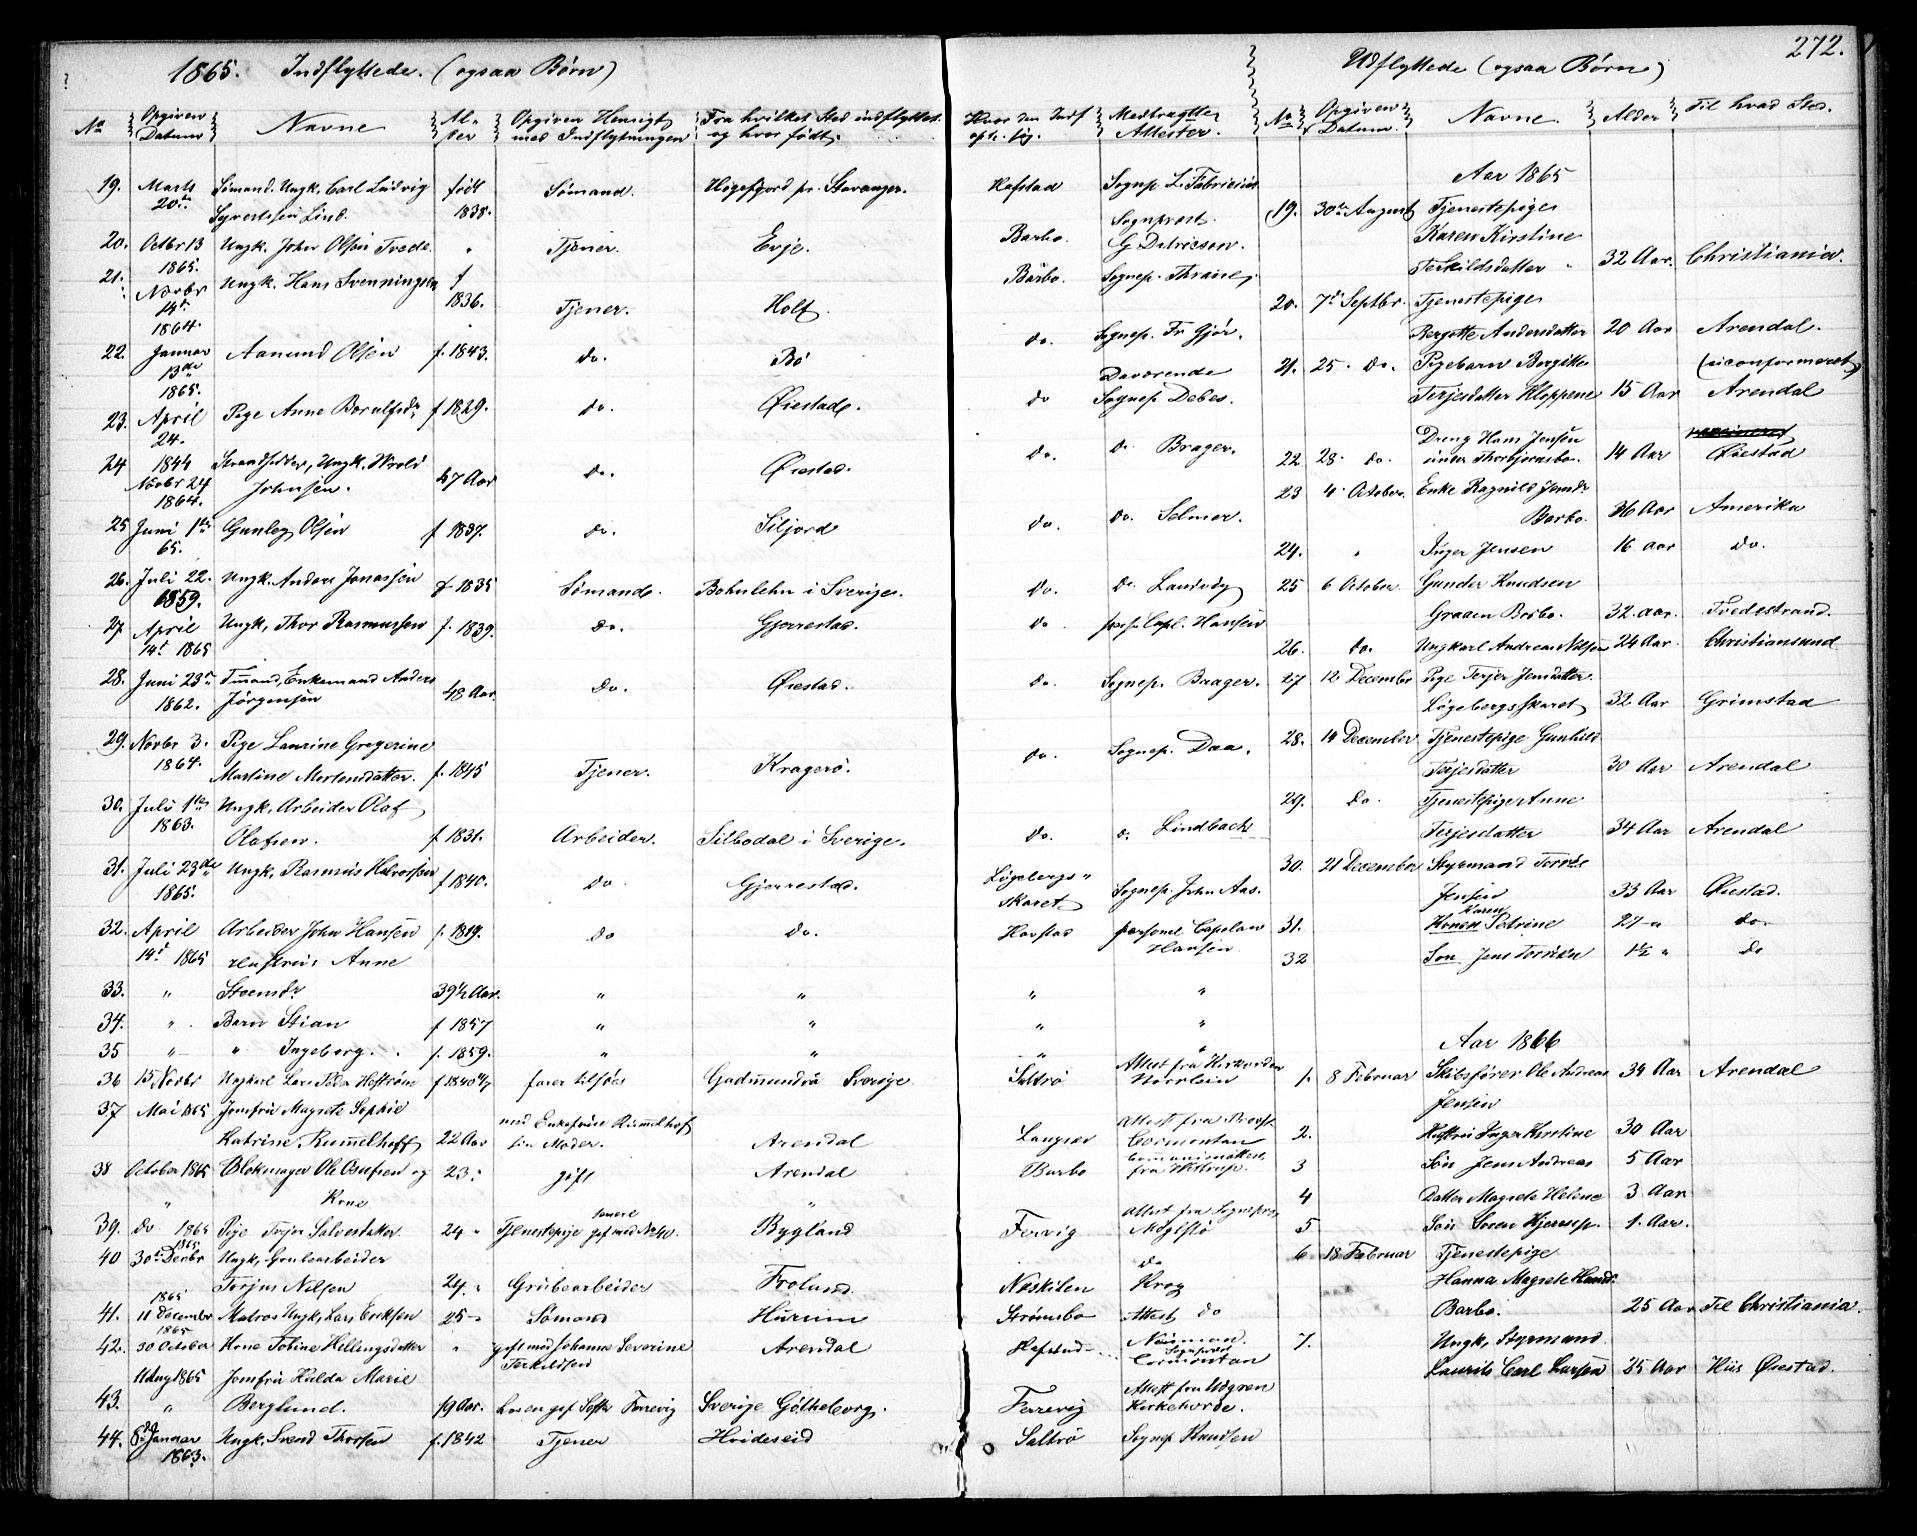 272.
1865. Indflyttede. (ogsaa Børn)
No Opgiven Datum Navne Alder Opgiven Hensigt med Indflytningen Fra hvilket Sted indflyttet og hvor født. Hvor den Indf opk. sig. Medbragte Attester.
19. Marts 20de Sømand. Ungk. Carl Ludvig født Sømand. Høgsfjord pr. Stavanger. Hofstad Sognep. L. Fabricius
Syvertsen Lind. 1838.
20. Octbr 13 1865. Ungk. John Olsen Tvede " Tjener. Evje. Barbo. Sognprest. G Ditricson.
21. Novbr 14de 1864. Ungk. Hans Svenningsen f 1836. Tjener. Holt. Barbo. Sognep. Thrane.
22. Januar 13de 1865. Aanund Olsen f. 1843. do. Bø do. Sognep. Fr Gjør.
23. April 24. Pige Anne f 1829. do. Øiestad. do Daværende Sognep Debes.
24 1844 Novbr 24 1864. Ungk. Wrold Johnsen. 47 Aar do. Øiestad. do. do Brager.
25 Juni 1ste 65. Gunleg Olsen f 1837. do. Siljord do. do. Selmer.
26. Juli 22. 1859. Ungk. Anders Jonassen f 1835 Sømand. Bohuslehn i Sverige. do. do. Landvdg
27 April 14de 1865 Ungk, Thor Rasmussen f. 1839. do. Gjerrestad. do pers. Capl. Hansen
28. Juni 23de 1862. Tmand, Enkemand Anders Jørgensen 48 Aar. do. Øiestad. do. Sognep. Baager.
29. Novbr 3. 1864. Pige Laurine Gregerine
Martine Mortensdatter. f. 1845 Tjener. Kragerø. do. Sognep. Daa.
30. Juli 1ste 1863. Ungk. Arbeider Olaf
Olafsen. f 1831. Arbeider. Silbodal i Sverige. do. do. Lindbach
31. Juli 23de 1865. Ungk. Rasmus Halvorsen f 1840. do Gjerrestad. Løgebergsskaret Sognep. John Aas.
32. April 14de 1865 Arbeider John Hansen f. 1819. do do. Havstad personl Capelan Hansen
Hustru: Anne
33. " Steensdr 39½ Aar. " " " "
34. " Barn Stian f 1857 " " " "
35 " " Ingeborg. f. 1859. " " " "
36 15 Novbr Ungkarl Lars Peder Heftrøm f 1840 4/7 farer tilsøes Gudmundrå Sverige Saltrø Attest fra Kirkeherden
37 Mai 1865 Jomfru Magrete Sophie
Katrine Rummelhoff 22 Aar med Enkefrue Rummelhof sin Moder. Arendal Langsæv Attest fra Provst Cormontan
38 October 1865 Blokmager Ole Osufsen og 23. gift Arendal Barbo Communionattest fra Wittrup.
" Kone "
39. do 1865 Pige Terjer Salvesdatter 24 " Tjenestepige senere gift med No 40. Bygland Fervig Attest fra Sogneprest Møglestö
40 1865 30te Decbr Ungk. Grubearbeider
Terjus Nilsen 24. " Grubearbeider Froland Næskilen do Krog
41. 1865 11 December Matros Ungk, Lars Eriksen 25 " Sømand Hurum Strømsbo Attest do
42. 1865 30 October Kone Tobine Hellingsdatter " gift med Johanne Severine Terkeldsen Arendal Hofstad Neuman. Sognprest Cormontan
43. 11 Aug 1865 Jomfru Hulda Marie
" Berglund. 19 Aar. hos en gift Søster Ferrevig Sverige Götheborg. Ferrevig Attest fra Udgren Kirkeherde.
44. 8de Januar 1863. Ungk. Svend Thorsen f. 1842 Tjener Hvideseid Saltrö Sognep Knudsen
Udflyttede (ogsaa Børn)
No Opgiven Datum. Navne. Alder Til hvad Sted.
Aar 1865
19. 30te August Tjenestepige
Karen Kirstine
Terkildsdatter 32 Aar. Christiania.
20. 7de Septbr. Tjenestepige
Bergitte Andersdatter 20 Aar Arendal.
21. 25. do. Pigebarn Bergitte (uconformeret)
Terjesdatter Kloppene 15 Aar Arendal
22 28. do. Dreng Hans Jensen
under Thorbjørnsbo. 14 Aar Øiestad
23 4. October. Enke Ragnild Jensdr
Barbo. 36 Aar Amerika
24. " Inger Jensen 16 aar do.
25 6 October Gunder Knudsen
Graaen Barbo. 32. aar. Tvedestrand.
26. do. Ungkarl Andreas Nilsen 24 Aar. Christiansund
27 12 December Pige Terjer Jensdatter
Løgebergsskaret 32 Aar Grimstad
28. 14 December Tjenestepige Gunhild
Terjesdatter 30 Aar Arendal
29. do. Tjenestepige Anne
Terjesdatter 34 Aar Arendal
30. 21 December Styrmand Terkel
Jensen 33 Aar Øiestad.
31. Konen Karen Petrine 27 " do.
32 Søn Jens Terkel 1½ " do
Aar 1866
1. 8 Februar Skibsfører Ole Andreas 34 Aar Arendal
Jensen
2. Hustru Inger Kirstine 30 Aar
3 Søn Jens Andreas 5 Aar
4 Datter Magrete Helene 3 Aar
5 Søn Soren Hjerup. 1. Aar.
6 18 Februar Tjenestepige
Hanna Magrete Hansd.
Barbo. 25 Aar Til Christiania.
7. Ungk. Styrmand
Laurits Carl Larsen 25 Aar Hiis Øiestad.